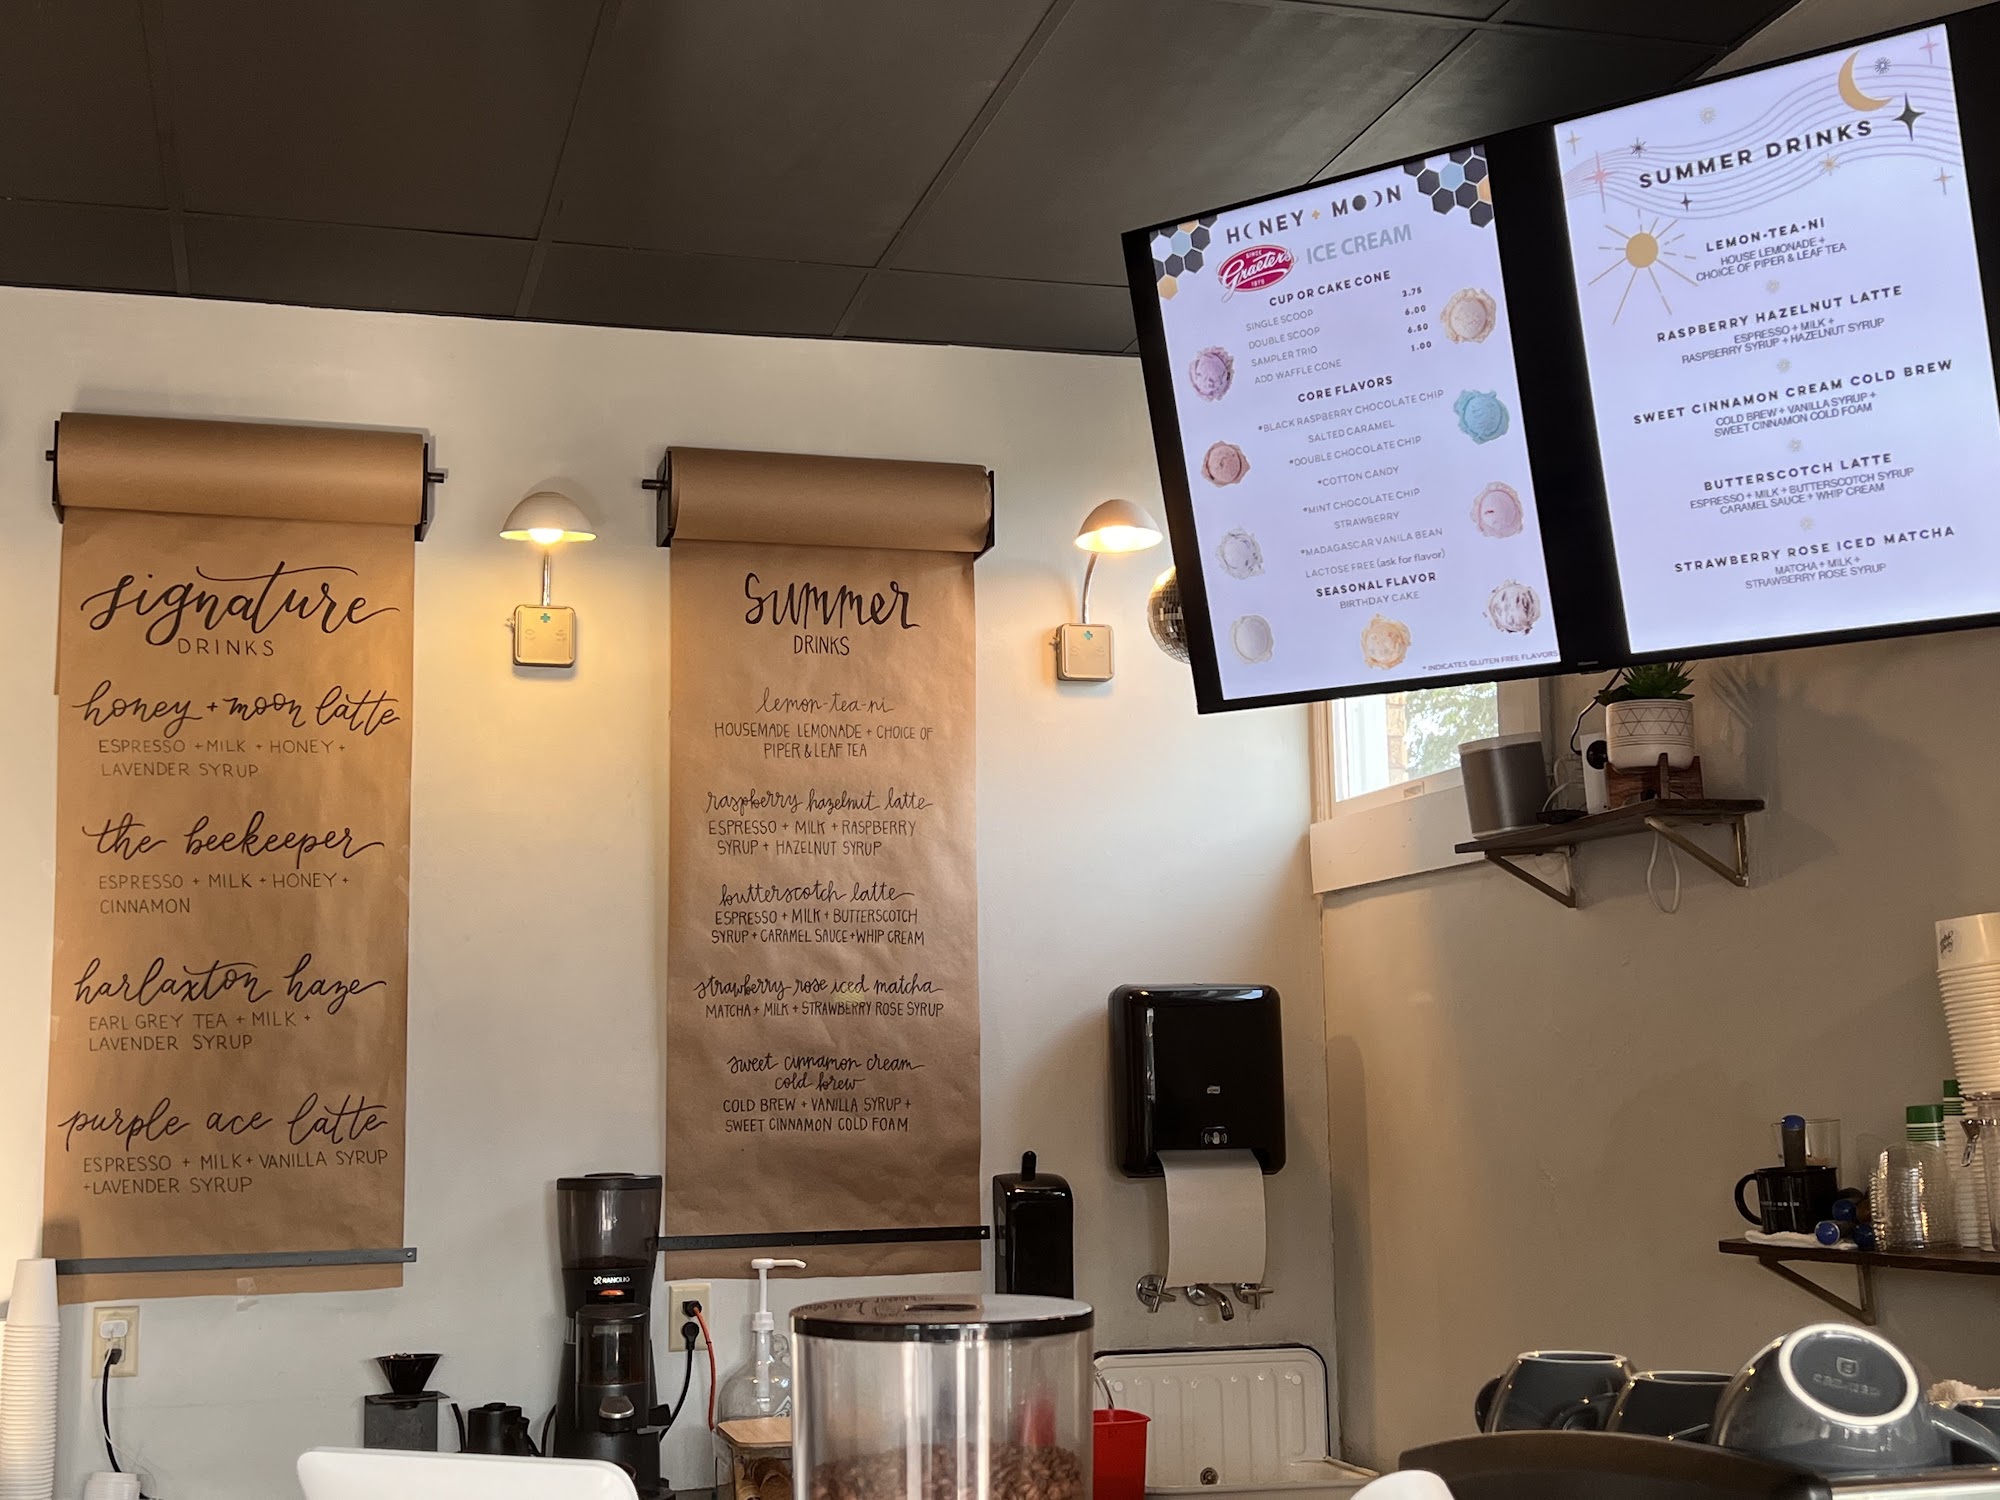 signature
DRINKS
honey + moon latte
ESPRESSO + MILK + HONEY +
LAVENDER SYRUP
the beekeeper
ESPRESSO + MILK + HONEY +
CINNAMON
harlaxton haze
EARL GREY TEA + MILK +
LAVENDER SYRUP
purple ace latte
ESPRESSO + MILK + VANILLA SYRUP
+LAVENDER SYRUP
summer
DRINKS
lemon-tea-ni
HOUSEMADE LEMONADE + CHOICE OF
PIPER & LEAF TEA
raspberry hazelnut latte
ESPRESSO + MILK + RASPBERRY
SYRUP + HAZELNUT SYRUP
butterscotch latte
ESPRESSO + MILK + BUTTERSCOTCH
SYRUP + CARAMEL SAUCE + WHIP CREAM
strawberry rose iced matcha
MATCHA + MILK + STRAWBERRY ROSE SYRUP
sweet cinnamon cream
cold brew
COLD BREW + VANILLA SYRUP +
SWEET CINNAMON COLD FOAM
HONEY + MOON
SINCE
Graeter's
1870
ICE CREAM
CUP OR CAKE CONE
SINGLE SCOOP 3.75
DOUBLE SCOOP 6.00
SAMPLER TRIO 6.50
ADD WAFFLE CONE 1.00
CORE FLAVORS
*BLACK RASPBERRY CHOCOLATE CHIP
SALTED CARAMEL
*DOUBLE CHOCOLATE CHIP
*COTTON CANDY
*MINT CHOCOLATE CHIP
STRAWBERRY
*MADAGASCAR VANILA BEAN
LACTOSE FREE (ask for flavor)
SEASONAL FLAVOR
BIRTHDAY CAKE
* INDICATES GLUTEN FREE FLAVORS
SUMMER DRINKS
LEMON-TEA-NI
HOUSE LEMONADE +
CHOICE OF PIPER & LEAF TEA
RASPBERRY HAZELNUT LATTE
ESPRESSO + MILK +
RASPBERRY SYRUP + HAZELNUT SYRUP
SWEET CINNAMON CREAM COLD BREW
COLD BREW + VANILLA SYRUP +
SWEET CINNAMON COLD FOAM
BUTTERSCOTCH LATTE
ESPRESSO + MILK + BUTTERSCOTCH SYRUP
CARAMEL SAUCE + WHIP CREAM
STRAWBERRY ROSE ICED MATCHA
MATCHA + MILK +
STRAWBERRY ROSE SYRUP
RANCILIO